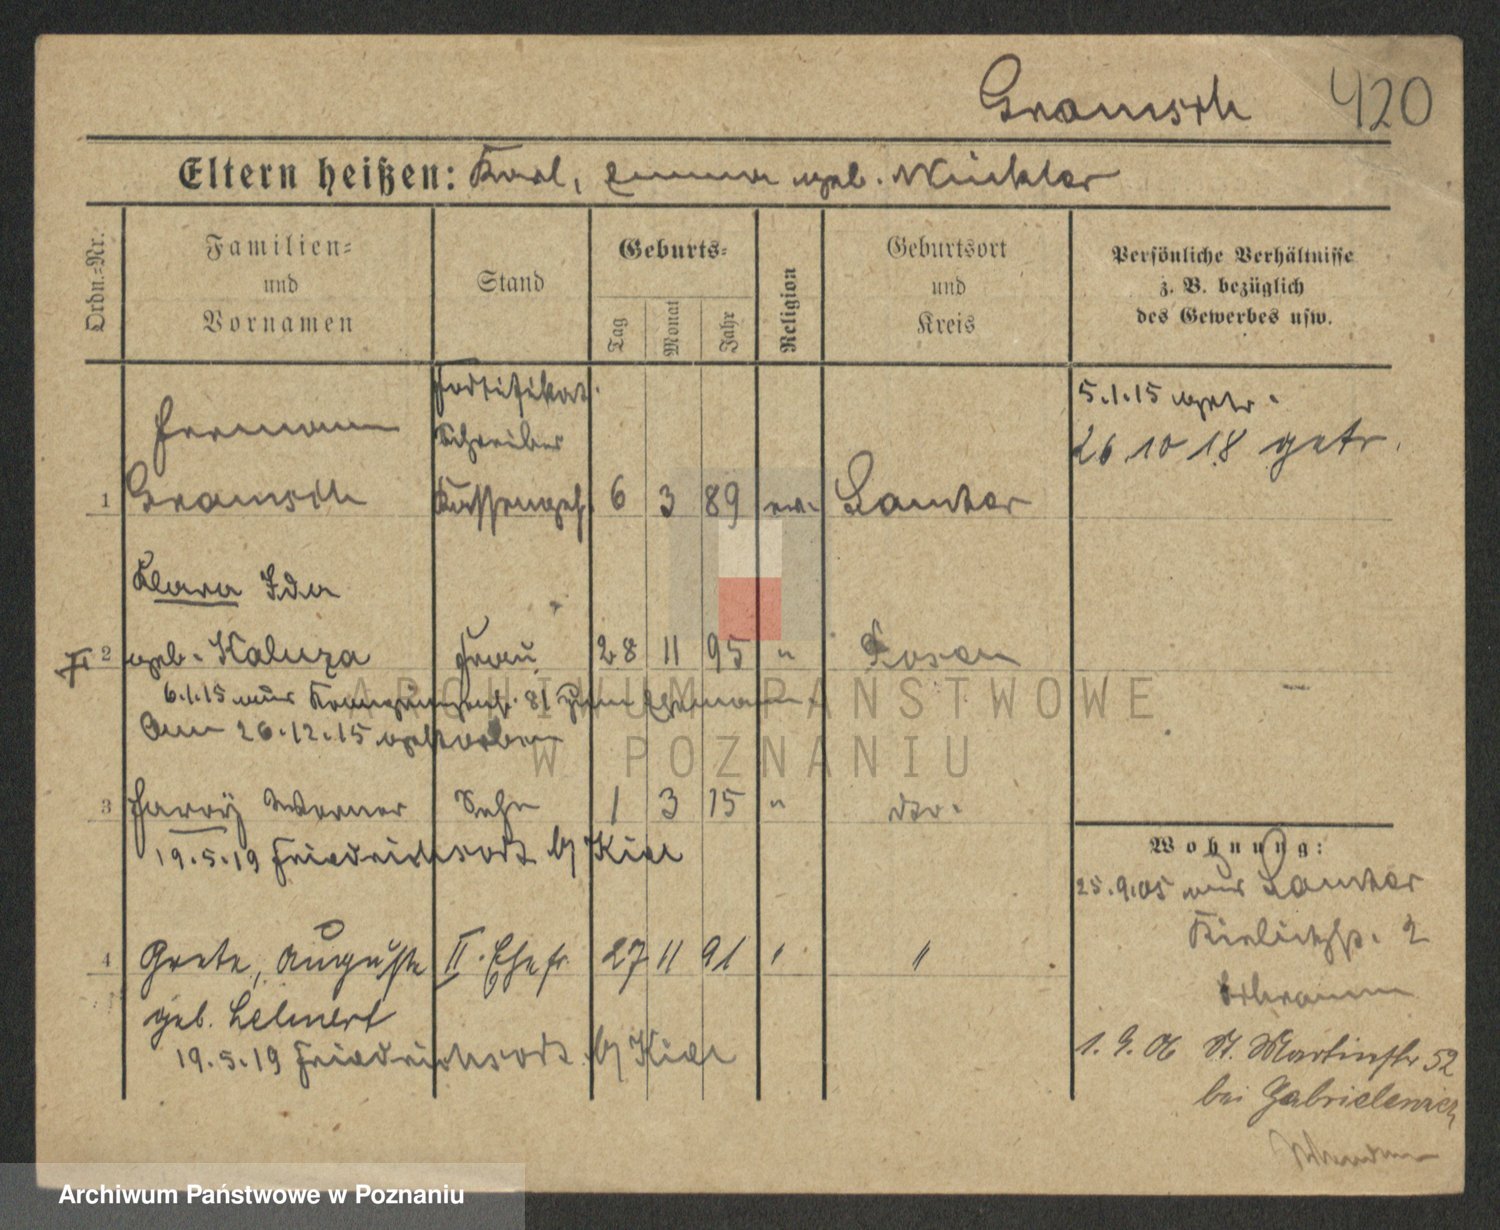 Gramsch 420
Eltern heißen: Karl, Emma geb. Winkler
Ordn.-Nr.
Familien-
und
Vornamen
Stand
Geburts-
Tag
Monat
Jahr
Religion
Geburtsort
und
Kreis
Persönliche Verhältnisse
z. B. bezüglich
des Gewerbes usw.
Hermann
Fortifikat.
Schreiber
5.1.15 getr.
26 10 18 getr.
1 Gramsch Kassengeh. 6 3 89 ev. Lawica
Klara Ida
2 geb. Kaluza Frau 28 11 95 " Posen
6.1.15 81 zum Ehemann
Am 26.12.15 gestorben
3 Harry Werner Sohn 1 3 15 " dto.
19.5.19 Friedrichsort b/ Kiel
4 Grete, Auguste II. Ehefr. 27 11 91 " "
geb. Lehnert
19.5.19 Friedrichsort b/ Kiel
Wohnung:
25.9.05 aus
2
1.9.06 St. Martinstr 52
bei Gabrielewicz
Archiwum Państwowe
w Poznaniu
Archiwum Państwowe w Poznaniu